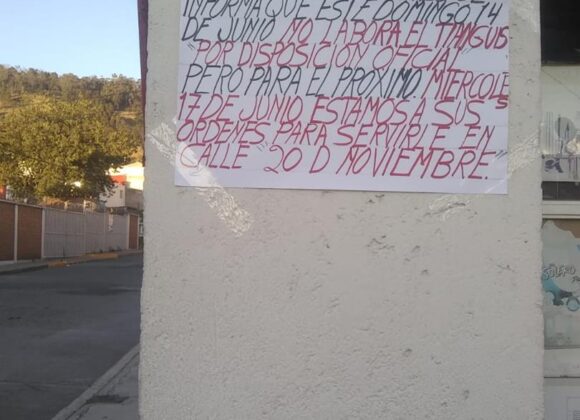 INFORMA QUE ESTE DOMINGO 14
DE JUNIO NO LABORA EL TIANGUIS
"POR DISPOSICION OFICIAL"
PERO PARA EL PROXIMO MIERCOLES
17 DE JUNIO ESTAMOS A SUS
ORDENES PARA SERVIRLE EN
CALLE "20 D NOVIEMBRE."